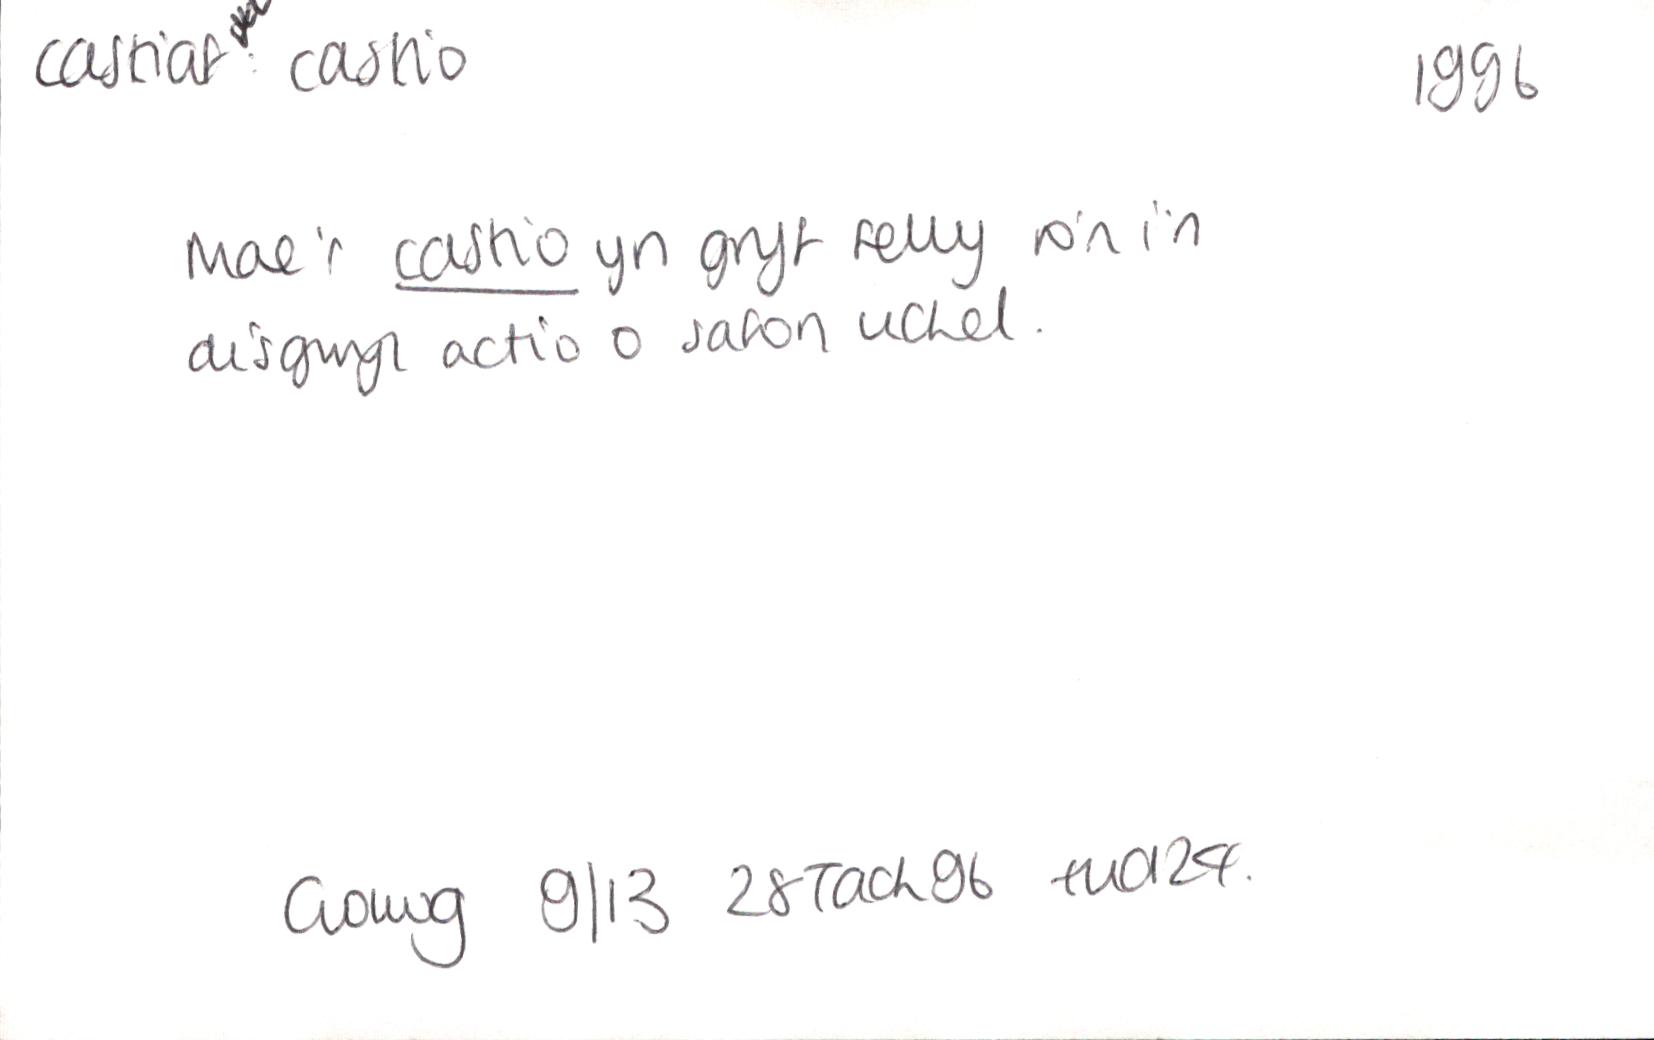 castiaf: castio 1996
Mae'r castio yn gryf felly ro'n i'n
disgwyl actio o safon uchel.
Golwg 9/13 28 Tach 96 tud 24.